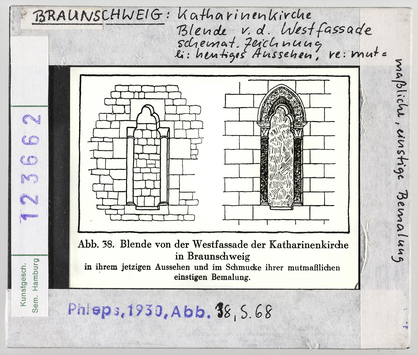 BRAUNSCHWEIG: Katharinenkirche
Blende v. d. Westfassade
schemat. Zeichnung
li: heutiges Aussehen, re: mut=
maßliche, einstige Bemalung
123662
Kunstgesch.
Sem. Hamburg
Abb. 38. Blende von der Westfassade der Katharinenkirche
in Braunschweig
in ihrem jetzigen Aussehen und im Schmucke ihrer mutmaßlichen
einstigen Bemalung.
Phleps, 1930, Abb. 38, S. 68